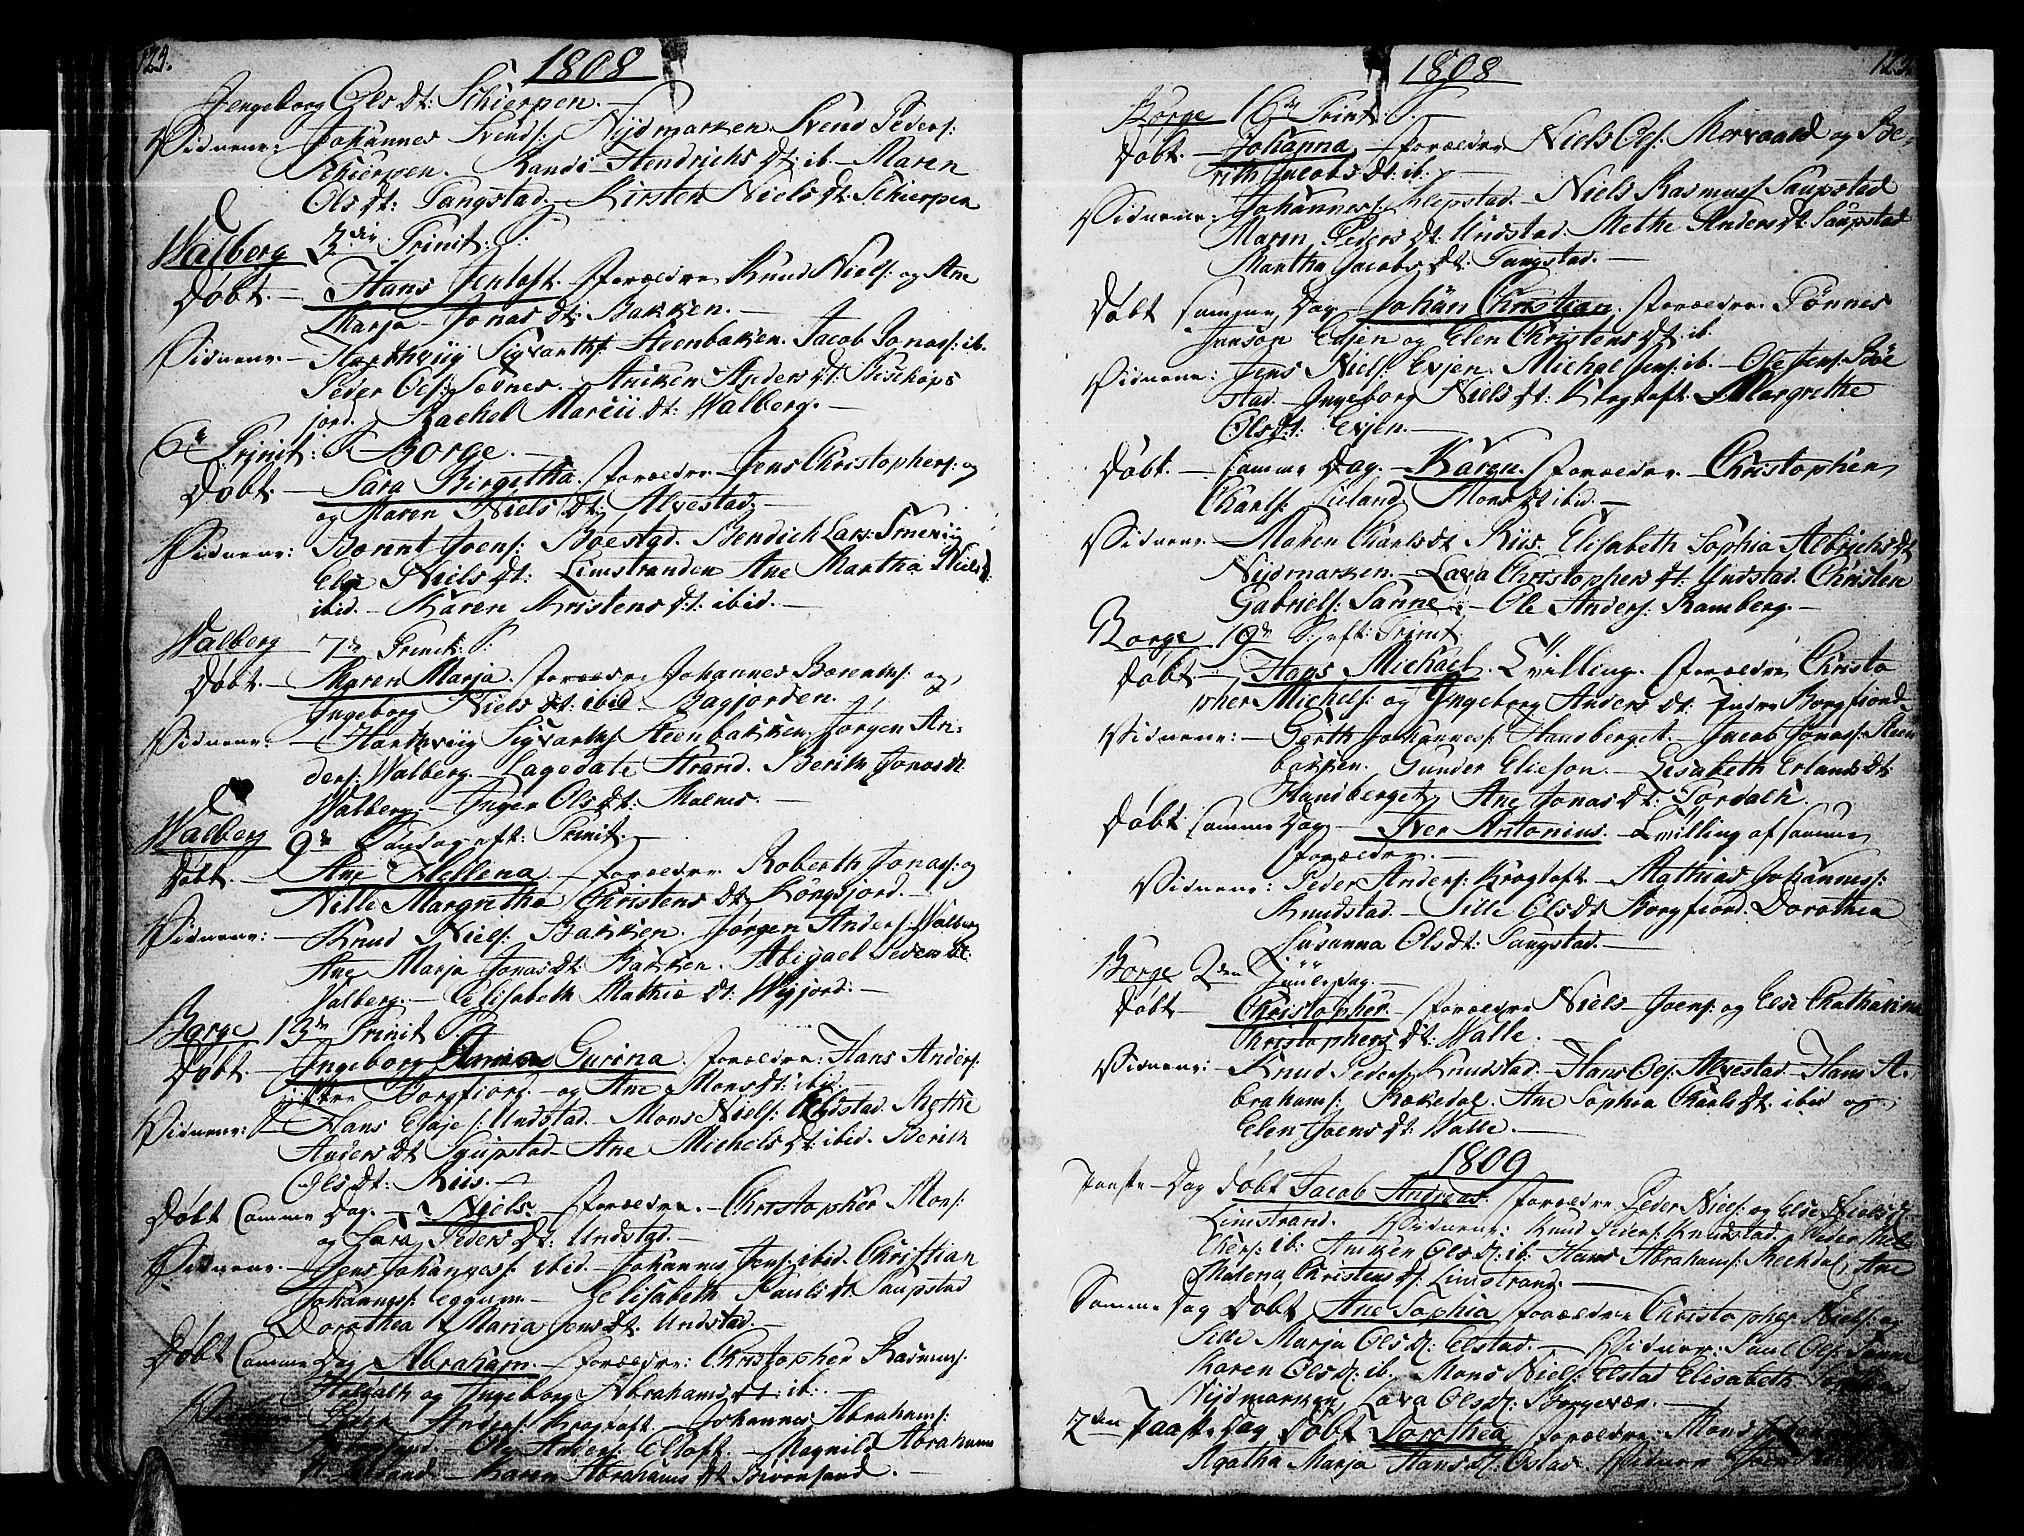 124.
1808
Jngeborg Olsdt: Schierpen. —
Vidnene: Johannes Svends: Nÿdmarken. Svend Peders:
Schierpen. Randi Hendrichsdt: ib. — Maren
Olsdt: Tangstad. — Kirsten Nielsdt: Schierpen
Walberg 3die Trinit: S:
Døbt. — Hans Jentoft. forældre Knud Niels: og Ane
Marja Jonasdt: Bakken. —
Vidnene. — Hartwiig Sigvarths: Steenbakken. Jacob Jonas: ib.
Peder Ols: Sævnes. — Aniken Andersdt: Biskops
jord. Rachel Marcii dt: Walberg. —
6te Trinit: S. Borge. —
Døbt. — Sara Birgitha. forældre Jens Christophers: og
og Maren Nielsdt: Alvestad
Vidnene: Bonnt Joens: Bøestad. Bendich Lars: Smeviig
Else Nielsdt: Limstranden Ane Martha Nielsdt:
ibid. — Karen Kristensdt: ibid. —
Walberg 7de Trinit: S:
Døbt. — Maren Marja. forældre Johannes Borenths: og
Jngeborg Nielsdt: ibid Bagjorden. —
Vidnene: — Hartwiig Sigvarths: Steenbakken. Jørgen An-
ders: Walberg. — Lagedate Strand. Berith Jonasdt
Walberg: — Jnger Olsdt: Malnes. —
Walberg 9de Søndag eft: Trinit. —
Døbt. — Ane Hellena — forældre Roberth Jonas: og
Nille Margretha Christensdt: Kongsjord. —
Vidnene: — Knud Niels: Bakken. Jørgen Anders: Walberg
Ane Marja Jonasdt: Bakken. Abigael Pedersdt:
Walberg. — Elisabeth Mathiædt: Wigjord. —
Borge 13de Trinit S.
Døbt. — Jngeborg Gurina. forældre: Hans Anders:
Borgfiord. — og Ane Monsdt: ibid —
Vidnene: Hans Esajes: Undstad. Mons Niels: Undstad. Methe
Andersdt Saupstad. Ane Michelsdt: ibid. Berith
Olsdt: Riis. —
Døbt Samme Dag. — Niels — forældre. — Christopher Mons:
og Sara Pedersdt: Undstad. —
Vidnene. — Jens Johannes: ibid. — Johannes Jens: ibid. Christian
Johannes: Eggum. — Elisabeth Paulsdt Saupstad
Dorothea Maria Jensdt: Undstad. —
Døbt Samme Dag Abraham. — forældre: Christopher Rasmus:
og Jngeborg Abrahamsdt: ib: —
Vidnene Peder Anders: Krogtoft — Johannes Abrahams:
Ole Anders: Eltoft. — Magnild Abrahams
— Karen Abrahamsdt —
1808
Borge 16de Trinit: S. —
Døbt. — Johanna, — forældre Niels Ols: Mervaald og Be-
rith Jacobsdt: ib. —
Vidnene: Johannes: Klepstad. — Niels Rasmus: Saupstad
Maren Pedersdt: Undstad. Methe Andersdt: Saupstad
Martha Jacobsdt: Tangstad. —
Døbt Samme Dag Johan Christian. forældre. Tønnes
Jenson Evjen og Elen Christensdt ib.
Vidnene: Jens Niels: Evjen. Michel Jens: ib. — Ole Jens: Bøe
stad — Jngeborg Nielsdt: Krogtoft. Margrethe
Olsdt: Evjen. —
Døbt. — Samme Dag. — Karen. forældre. Christophen
Charls: Lieland Monsdt ibid. —
Vidnene Maren Charlsdt Riis. Elisabeth Sophia Albrichsdt
Nÿdmarken. — Lava Christophersdt: Undstad. Christen
Gabriels: Sanne. — Ole Anders: Ramberg. —
Borge 19de S: eft: Trinit
Døbt — Hans Michael. Tvilling. forældre Christo
pher Michels: og Jngeborg Andersdt: Jndre Borgfiord.
Vidnene: — Gerth Johannes: Handberget. — Jacob Jonas: Steen
bakken. Gunder Elieson. — Lisabeth Erlandsdt:
Handberget, Ane Jonasdt: Tordalh.
Døbt Samme Dag — Iver Antonius. — Tvilling af samme
forældre. —
Vidnene: Peder Anders: Krogtoft — Mathias Johannes:
Knudstad. — Sille Olsdt Borgfiord. Dorothea
Susanna Olsdt: Tangstad. —
Borge 2den Juule Dag. —
Døbt — Christopher. forældre Niels Joens: og Else Chatharina
Christophersdt: Walle.
Vidnene: — Knud Peders: Knudstad. — Hans Ols: Alvestad — Hans A-
brahams: Rækedal. Ane Sophia Charlsdt: ibid og
Elen Joensdt: Walle. —
1809
Paaske-Dag Døbt Jacob Andreas. forældre Peder Niels: og Else Nielsd.
Limstrand. Vidnene: Knud Peders: Knudstad. Peder
ib: Aniken Olsd. ib: Hans Abrahams: Reckdal, Ane
Malena Christensd: Limstrand. —
Samme Dag Døbt Ane Sophia, forældre Christopher Niels: og
Sille Marja Olsd: Elstad. — Vidnene: Paul Ols: Sanne
Karen Olsd: ib. Mons Niels: Elstad Elisabeth Sophia
Nÿdmarken, Lava Olsd: Borgevær. —
2den Paaske Dag Døbt Dorothea forældre: Mons
Agatha Marja Hansd: Ostad. Vidnene Joen